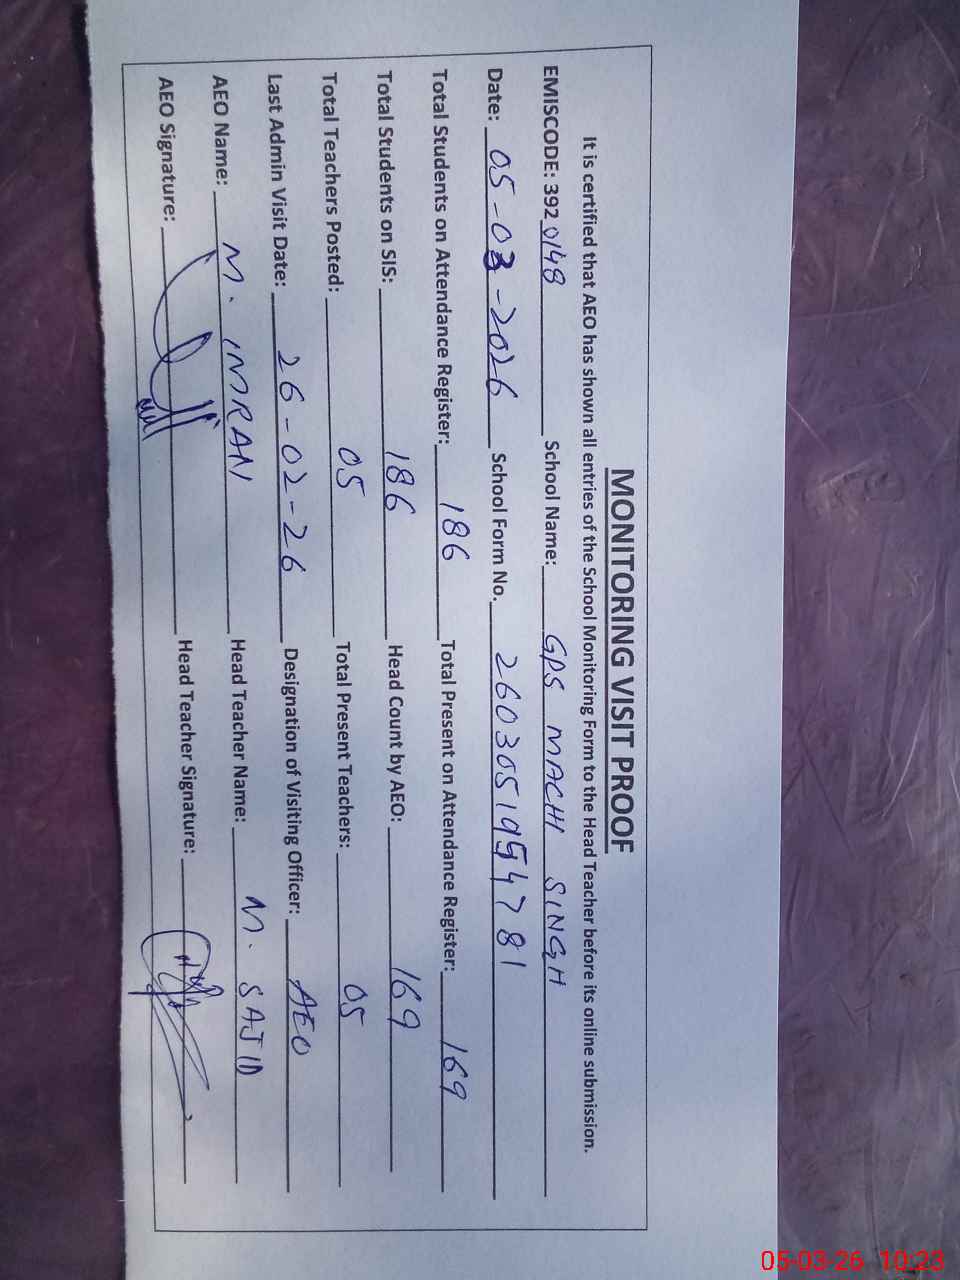 MONITORING VISIT PROOF
It is certified that AEO has shown all entries of the School Monitoring Form to the Head Teacher before its online submission.
EMISCODE: 392 0148 School Name: GPS MACHI SINGH
Date: 05-03-2026 School Form No. 2603051954781
Total Students on Attendance Register: 186 Total Present on Attendance Register: 169
Total Students on SIS: 186 Head Count by AEO: 169
Total Teachers Posted: 05 Total Present Teachers: 05
Last Admin Visit Date: 26-02-26 Designation of Visiting Officer: AEO
AEO Name: M. IMRAN Head Teacher Name: M. SAJID
AEO Signature: Head Teacher Signature:
05-03-26 10:23